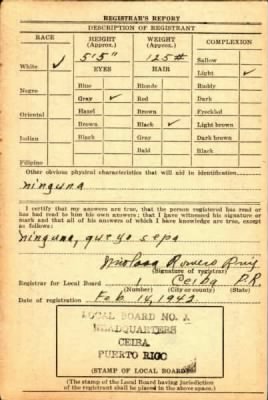 REGISTRAR'S REPORT
DESCRIPTION OF REGISTRANT
RACE HEIGHT (Approx.) WEIGHT (Approx.) COMPLEXION
5'5" 125# Sallow
White ✓ EYES HAIR Light ✓
Blue Blonde Ruddy
Negro Gray ✓ Red Dark
Hazel Brown Freckled
Oriental Brown Black ✓ Light brown
Indian Black Gray Dark brown
Bald Black
Filipino
Other obvious physical characteristics that will aid in identification
ninguna
I certify that my answers are true, that the person registered has read or
has had read to him his own answers; that I have witnessed his signature or
mark and that all of his answers of which I have knowledge are true, except
as follows:
ninguna, que yo sepa
Romero Ruiz
(Signature of registrar)
Registrar for Local Board Ceiba P.R.
(Number) (City or county) (State)
Date of registration Feb. 16, 1942
LOCAL BOARD NO.
HEADQUARTERS
CEIBA
PUERTO RICO
(STAMP OF LOCAL BOARD)
(The stamp of the Local Board having jurisdiction
of the registrant shall be placed in the above space.)